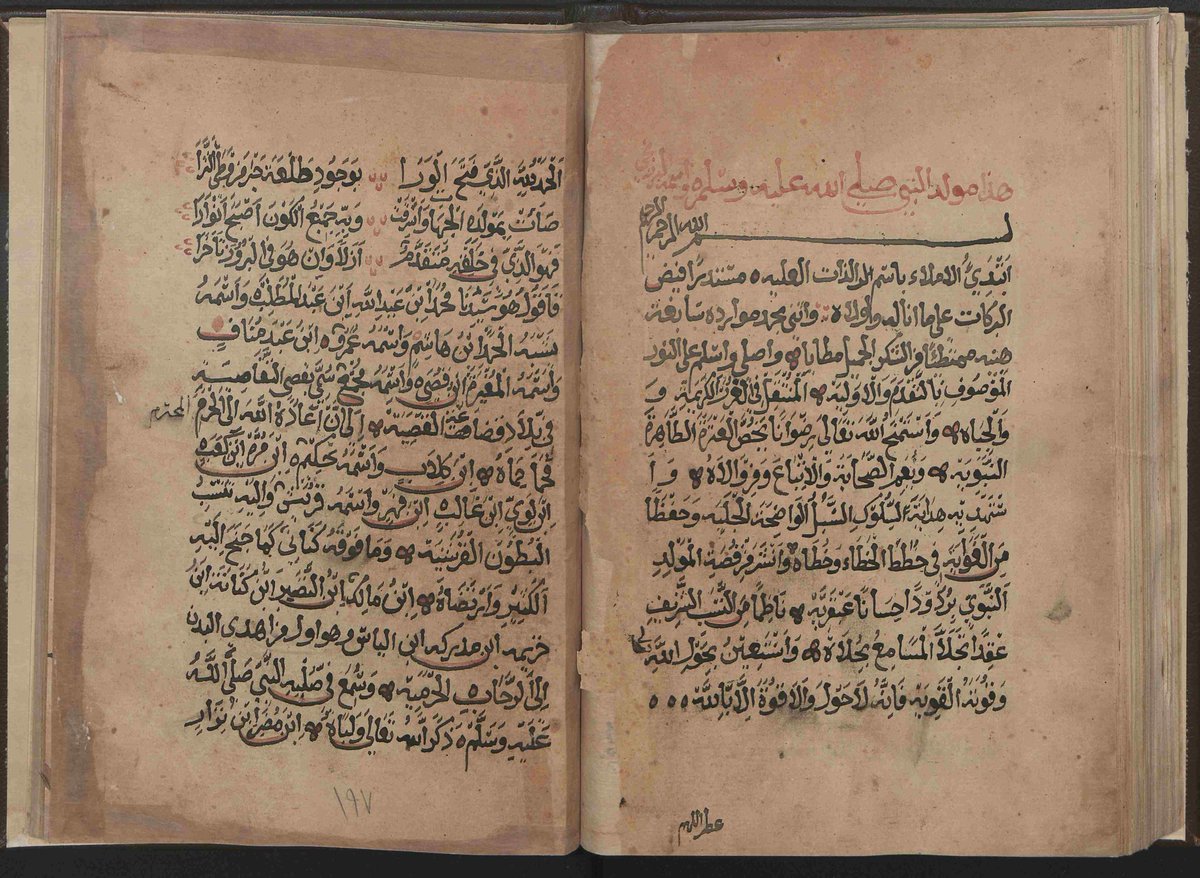 هذا مولد النبي صلى الله عليه وسلم
بسم الله الرحمن الرحيم
ابتدئ الاملاء باسم الذات العليه ه مستدرا فيض
البركات على ما اناله واولاه ه واثني بحمد موارده سائغة
هنيه ممتطئا من الشكر الجميل مطاياه واصلي واسلم على النور
الموصوف بالتقدم والاوليه ه المتنقل في الغرر الكريمة و
والجباه ه واستمنح الله تعالى رضوانا يخص العترة الطاهرة
النبويه ه ويعم الصحابة والاتباع ومن والاه ه وا
ستمد به هداية لسلوك السبل الواضحة الجليه وحفظا
من الغوايه في خطط الخطاء وخطاه وانشر من قصة المولد
النبوي برودا حسانا عبقريه ه ناظما من النسب الشريف
عقدا تحلا المسامع بحلاه ه واستعين بحول الله تعالى
وقوته القويه فانه لا حول ولا قوة الا بالله ه ه ه
عطر اللهم
الحمد لله الذي فتح الورا بوجود طلعة
ضات بمولده الجها واشرقت وبه جميع الكون اصبح انوارا
فهو الذي في خلقه متقدم ازلا وان هو في البروز تاخرا
فاقول هو سيدنا محمد ابن عبد الله ابن عبد المطلب واسمه
شيبه الحمد ابن هاشم واسمه عمرو ه ابن عبد مناف
واسمه المغيره ابن قصي ه واسمه مجمع سمي بقصي لتقاصيه
في بلاد قضاعة القصيه ه الى ان اعاده الله الى الحرم
المحترم
فحما حماه ه ابن كلاب واسمه حكيم ه ابن مره ابن كعب
ابن لوي ابن غالب ابن فهر واسمه قريش واليه تنتسب
البطون القرشيه ه وما فوقه كناني كما جنح اليه
الكثير وارتضاه ه ابن مالك ابن النضير ابن كنانة ابن
خزيمه ابن مدركه ابن الياس وهو اول من اهدى البدن
الى الرحاب الحرميه ه وسمع في صلبه النبي صلى الله
عليه وسلم ه ذكر الله تعالى ولباه ه ابن مضر ابن نزار
١٩٧